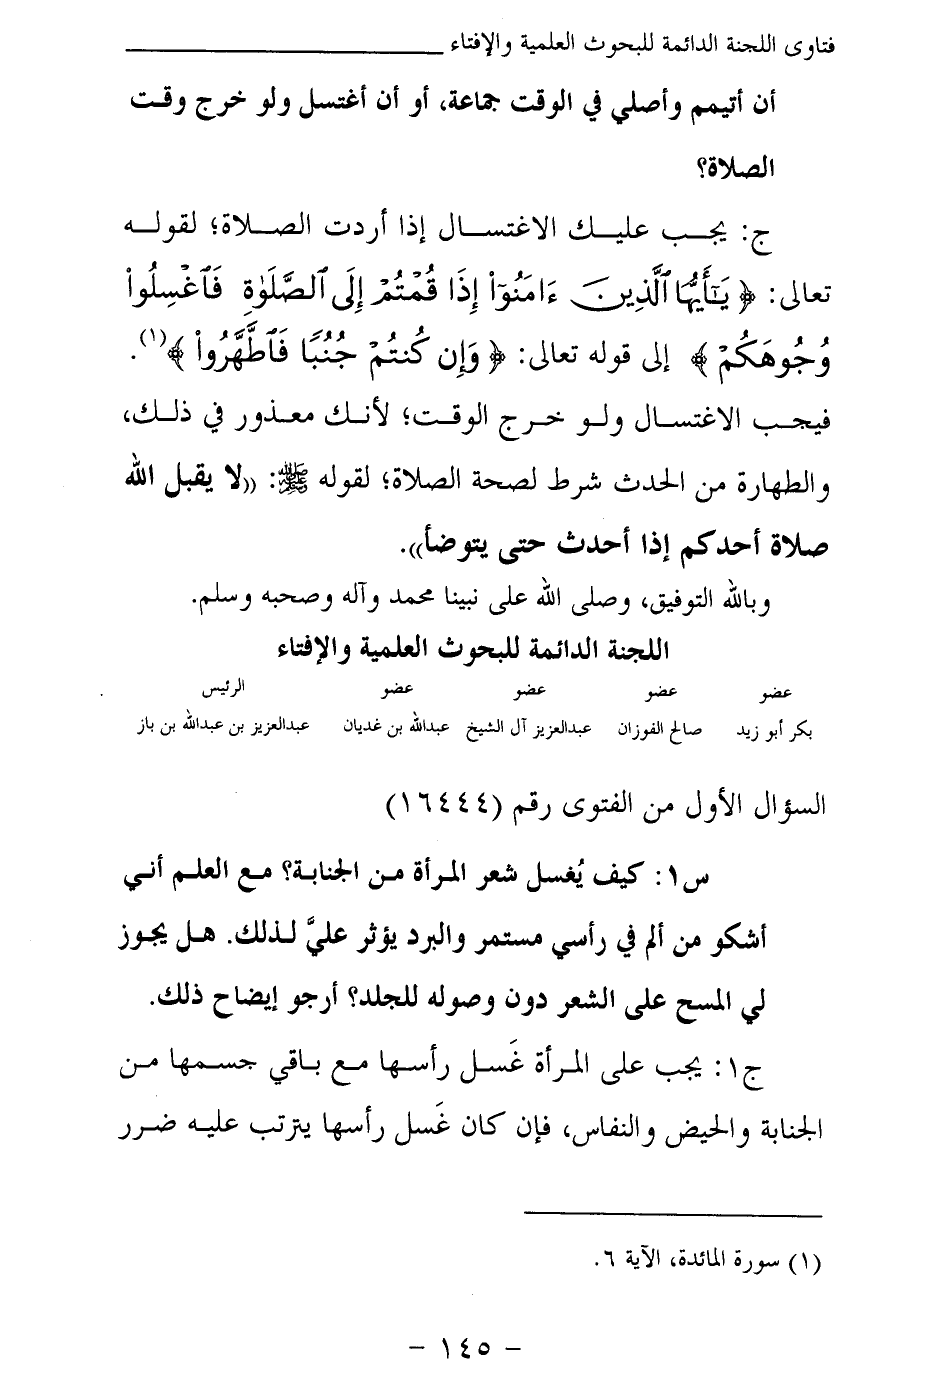 فتاوى اللجنة الدائمة للبحوث العلمية والإفتاء
أن أتيمم وأصلي في الوقت جماعة، أو أن أغتسل ولو خرج وقت
الصلاة؟
ج: يجب عليك الاغتسال إذا أردت الصلاة؛ لقوله
تعالى: ﴿يَٰٓأَيُّهَا ٱلَّذِينَ ءَامَنُوٓا۟ إِذَا قُمْتُمْ إِلَى ٱلصَّلَوٰةِ فَٱغْسِلُوا۟
وُجُوهَكُمْ﴾ إلى قوله تعالى: ﴿وَإِن كُنتُمْ جُنُبًا فَٱطَّهَّرُوا۟﴾(١).
فيجب الاغتسال ولو خرج الوقت؛ لأنك معذور في ذلك،
والطهارة من الحدث شرط لصحة الصلاة؛ لقوله ﷺ: ((لا يقبل الله
صلاة أحدكم إذا أحدث حتى يتوضأ)).
وبالله التوفيق، وصلى الله على نبينا محمد وآله وصحبه وسلم.
اللجنة الدائمة للبحوث العلمية والإفتاء
عضو عضو عضو عضو الرئيس
بكر أبو زيد صالح الفوزان عبدالعزيز آل الشيخ عبدالله بن غديان عبدالعزيز بن عبدالله بن باز
السؤال الأول من الفتوى رقم (١٦٤٤٤)
س١: كيف يُغسل شعر المرأة من الجنابة؟ مع العلم أني
أشكو من ألم في رأسي مستمر والبرد يؤثر عليَّ لذلك. هل يجوز
لي المسح على الشعر دون وصوله للجلد؟ أرجو إيضاح ذلك.
ج١: يجب على المرأة غَسل رأسها مع باقي جسمها من
الجنابة والحيض والنفاس، فإن كان غَسل رأسها يترتب عليه ضرر
(١) سورة المائدة، الآية ٦.
- ١٤٥ -